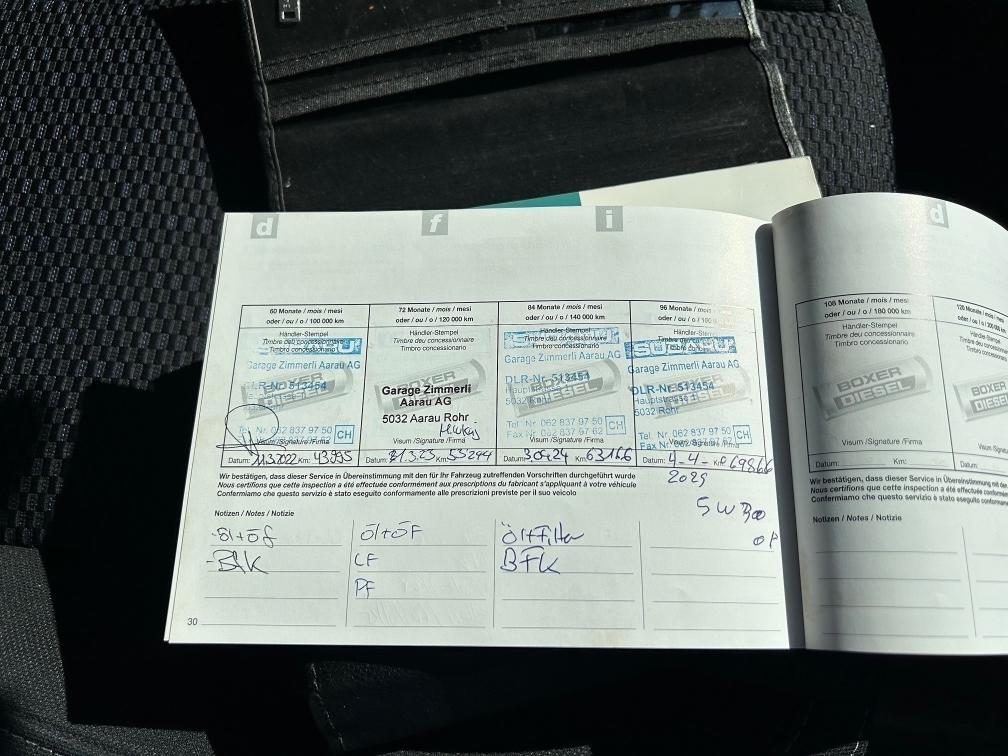 d f i d
60 Monate / mois / mesi
oder / ou / o / 100 000 km
Händler-Stempel
Timbre deu concessionnaire
Timbro concessionario
Garage Zimmerli Aarau AG
DLR-Nr. 513454
BOXER
DIESEL
Tel. Nr. 062 837 97 50
CH
Visum /Signature /Firma
Datum: 21.3.2022 Km: 43995
72 Monate / mois / mesi
oder / ou / o / 120 000 km
Händler-Stempel
Timbre deu concessionnaire
Timbro concessionario
BOXER
DIESEL
Garage Zimmerli
Aarau AG
5032 Aarau Rohr
Visum /Signature /Firma
Datum: 21.3.23 Km: 55244
84 Monate / mois / mesi
oder / ou / o / 140 000 km
Händler-Stempel
Timbre deu concessionnaire
Timbro concessionario
Garage Zimmerli Aarau AG
DLR-Nr. 513454
Hauptstrasse
5032 Rohr
BOXER
DIESEL
Tel. Nr. 062 837 97 50
Fax Nr. 062 837 97 62
CH
Visum /Signature /Firma
Datum: 3.04.24 Km: 63166
96 Monate / mois / mesi
oder / ou / o / 160 000 km
Garage Zimmerli Aarau AG
DLR-Nr. 513454
Hauptstrasse
5032 Rohr
Tel. Nr. 062 837 97 50
Fax Nr. 062 837 97 62
CH
Datum: 4-4- Km: 69866
2025
108 Monate / mois / mesi
oder / ou / o / 180 000 km
Händler-Stempel
Timbre deu concessionnaire
Timbro concessionario
BOXER
DIESEL
Visum /Signature /Firma
Datum: Km:
120 Monate
BOXER
DIESEL
Wir bestätigen, dass dieser Service in Übereinstimmung mit den für Ihr Fahrzeug zutreffenden Vorschriften durchgeführt wurde
Nous certifions que cette inspection a été effectuée conformément aux prescriptions du fabricant s'appliquant à votre véhicule
Confermiamo che questo servizio è stato eseguito conformamente alle prescrizioni previste per il suo veicolo
Notizen / Notes / Notizie
Öl+ÖF
-BFK
Öl+ÖF
CF
PF
Öl+Filter
BFK
5W30
30
Wir bestätigen, dass dieser Service in Übereinstimmung mit den
Nous certifions que cette inspection a été effectuée
Confermiamo che questo servizio è stato eseguito
Notizen / Notes / Notizie